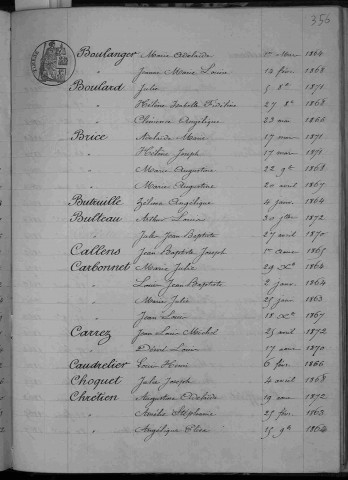 356
Boulanger Marie Adelaïde 1er Mars 1864
" Jeanne Marie Louise 12 févr. 1868
Boulard Julie 5 8bre 1871
" Hélène Isabelle 27 8bre 1868
" Clémence Angélique 23 mai 1866
Brice Adelaïde Marie 17 mars 1871
" Hélène Joseph 17 mars 1871
" Marie Augustine 22 9bre 1868
" Marie Augustine 20 avril 1867
Buteuille Zélime Angélique 4 janv. 1864
Bulteau Arthur Louis 30 1872
" Jules Jean Baptiste 27 avril 1870
Callens Jean Baptiste Joseph 1er 1865
Carbonnet Marie Julie 29 Xbre 1864
" Louis Jean Baptiste 2 janv. 1864
" Marie Julie 25 janv. 1863
" Jean Louis 18 Xbre 1867
Carrez Jean Louis Michel 23 avril 1872
" Désiré Louis 17 1870
Caudrelier Henri 6 févr. 1866
Choquet Jules Joseph 4 avril 1868
Chrétien Augustine Adelaïde 19 mai 1872
" Amélie Stéphanie 25 févr. 1863
" Angélique Elise 15 9bre 1864